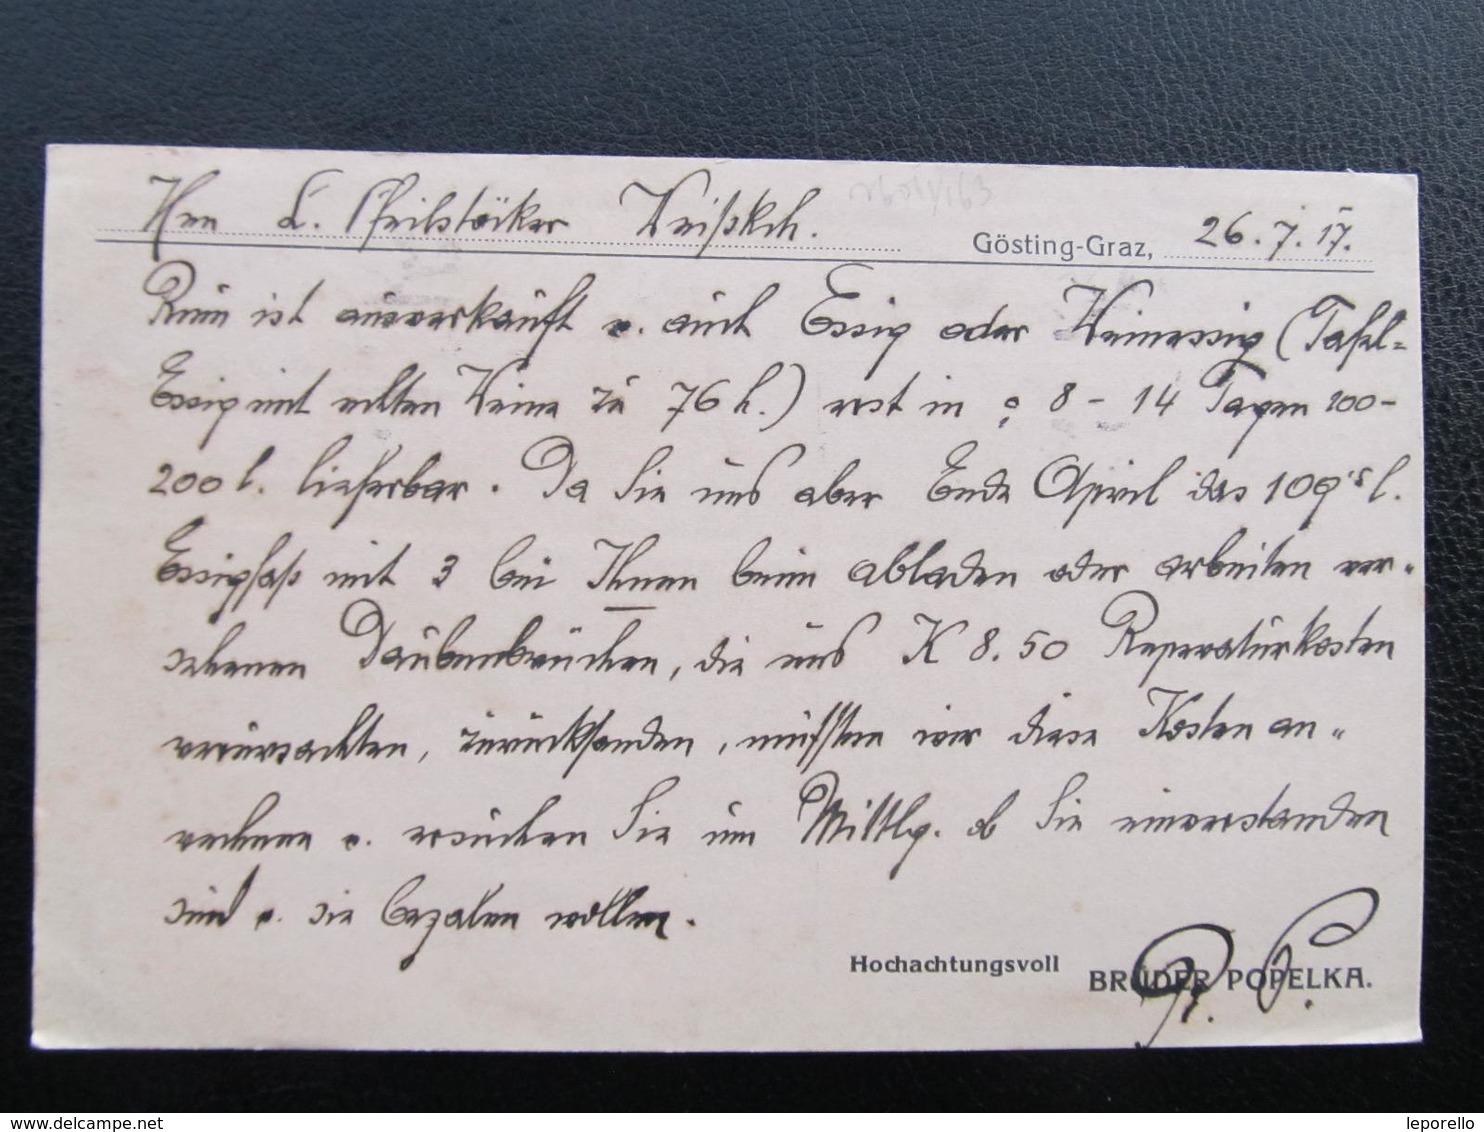 Herrn L. Pfeilstöcker Weißkch.
Gösting-Graz, 26. 7. 17.
Rum ist ausverkauft u. auch Essig oder Weinessig (Tafel-
Essig mit echten Weine zu 76 h.) erst in 8 - 14 Tagen 100-
200 l. lieferbar. Da Sie uns aber Ende April das 109'5 l.
Essigfaß mit 3 bei Ihnen beim abladen oder arbeiten ver-
sehenen Daubenbrüchen, die uns K 8.50 Reperaturkosten
verursachten, zurücksanden, mußten wir diese Kosten an-
rechnen u. ersuchen Sie um Mittlg. ob Sie einverstanden
sind u. sie bezalen wollen.
Hochachtungsvoll
BRÜDER POPELKA.
www.delcampe.net
leporello